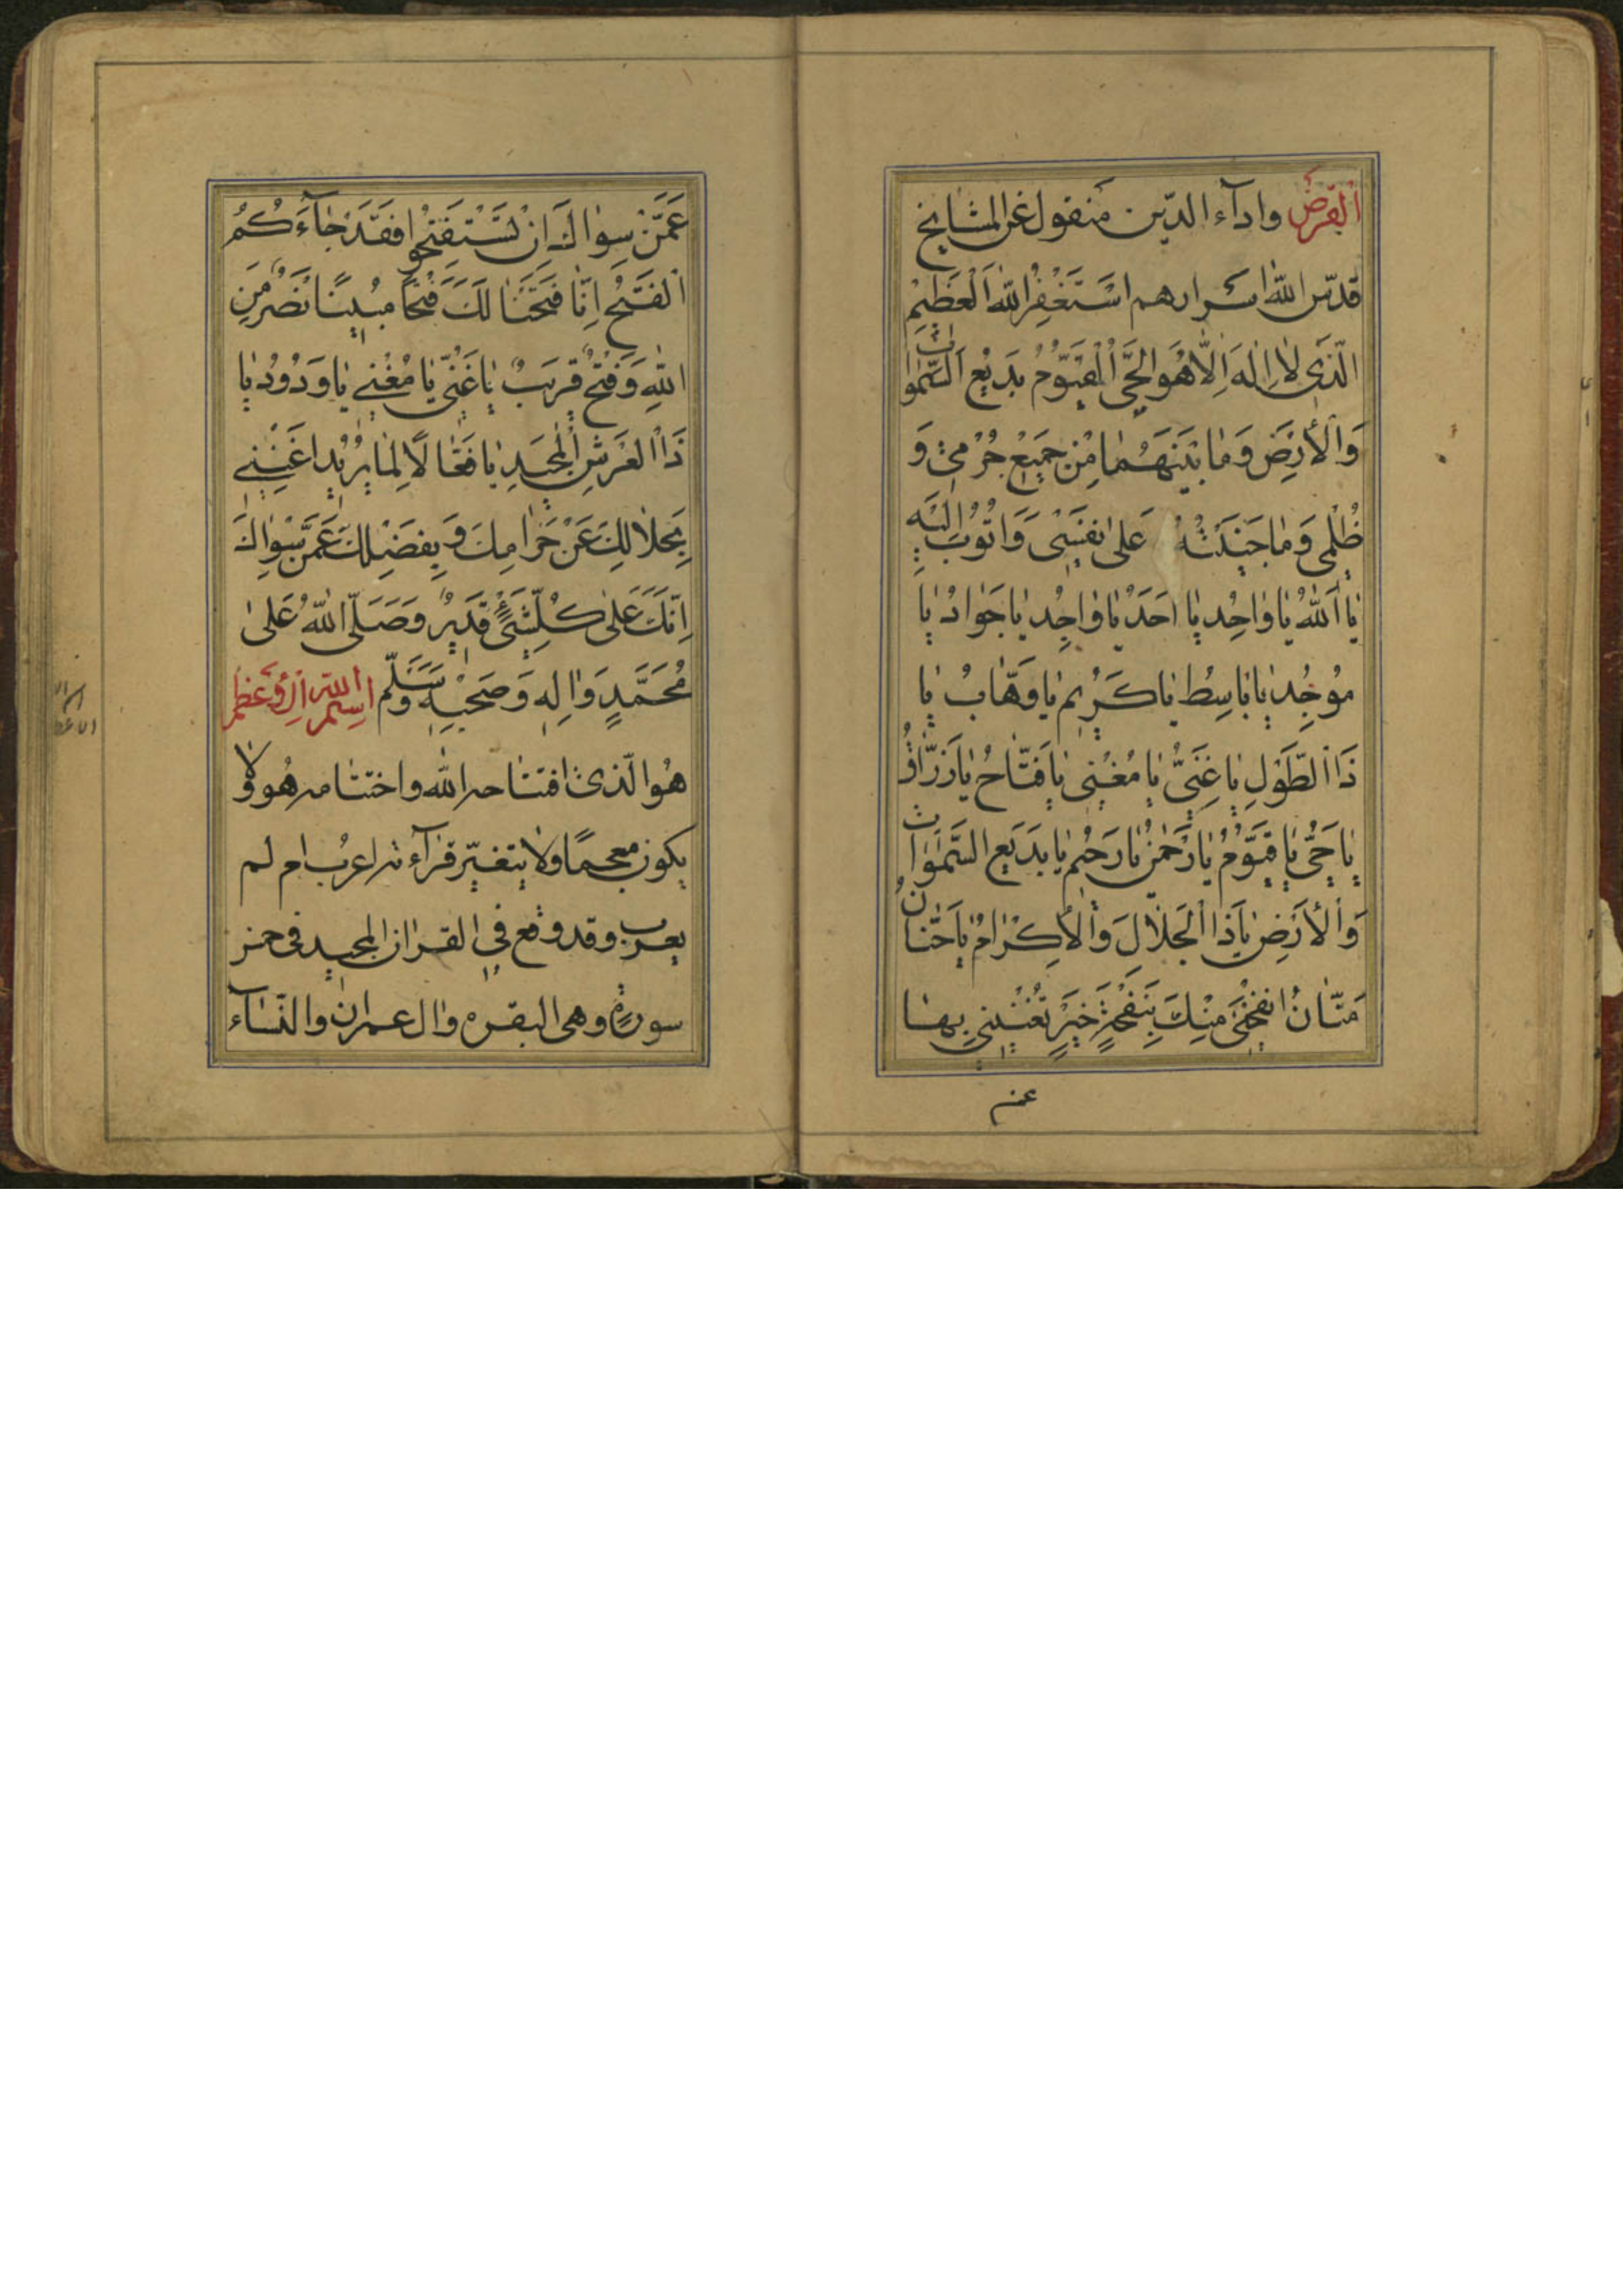 اَلْقَرْضِ وادآء الدّين منقول عن المشايخ
قدّس الله اسرارهم اَسْتَغْفِرُ اللهَ الْعَظِيْمَ
الَّذَى لَا اِلٰهَ اِلَّا هُوَ الْحَىُّ الْقَيُّوْمُ بَدِيْعُ السَّمٰوَاتِ
وَالْأَرْضِ وَمَا بَيْنَهُمَا مِنْ جَمِيْعِ جُرْمِىْ وَ
ظُلْمِى وَمَا جَنَيْتُهُ عَلٰى نَفْسِىْ وَاَتُوْبُ اِلَيْهِ
يَا اَللّٰهُ يَا وَاحِدُ يَا اَحَدُ يَا وَاجِدُ يَا جَوَادُ يَا
مُوْجِدُ يَا بَاسِطُ يَا كَرِيْمُ يَا وَهَّابُ يَا
ذَا الطَّوْلِ يَا غَنِىُّ يَا مُغْنِى يَا فَتَّاحُ يَا رَزَّاقُ
يَا حَىُّ يَا قَيُّوْمُ يَا رَحْمٰنُ يَا رَحِيْمُ يَا بَدِيْعَ السَّمٰوَاتِ
وَالْأَرْضِ يَا ذَا الْجَلَالَ وَالْأِكْرَامُ يَا حَنَّانُ
مَنَّانُ انْفَحْنِىْ مِنْكَ بِنَفْحَةِ خَيْرٍ تُغْنِيْنِى بِهَا
عمن
عَمَّنْ سِوَاكَ اِنْ تَسْتَفْتِحُوْا فَقَدْ جَآءَكُمُ
الْفَتْحُ اِنَّا فَتَحْنَا لَكَ فَتْحًا مُبِيْنًا نَصْرٌ مِنَ
اللهِ وَفَتْحٌ قَرِيْبٌ يَا غَنِىُّ يَا مُغْنِى يَا وَدُوْدُ يَا
ذَا الْعَرْشِ الْمَجِيْدِ يَا فَعَّالًا لِمَا يُرِيْدُ اَغْنِنِى
بِحَلَالِكَ عَنْ حَرَامِكَ وَبِفَضْلِكَ عَمَّنْ سِوَاكَ
اِنَّكَ عَلٰى كُلِّ شَىْءٍ قَدِيْرٌ وَصَلَّى اللهُ عَلٰى
مُحَمَّدٍ وَاٰلِهِ وَصَحْبِهِ وَسَلَّم اسم الله الاعظم
هُو الّذى افتتاحه الله واختتامه هُو ولا
يكون معجمًا ولا يتغيّر قرآءته اعرب ام لم
يعرب وقد وقع فى القران المجيد فى خمس
سورة وهى البقرة وال عمران والنّساء
اسم الله
الاعظم